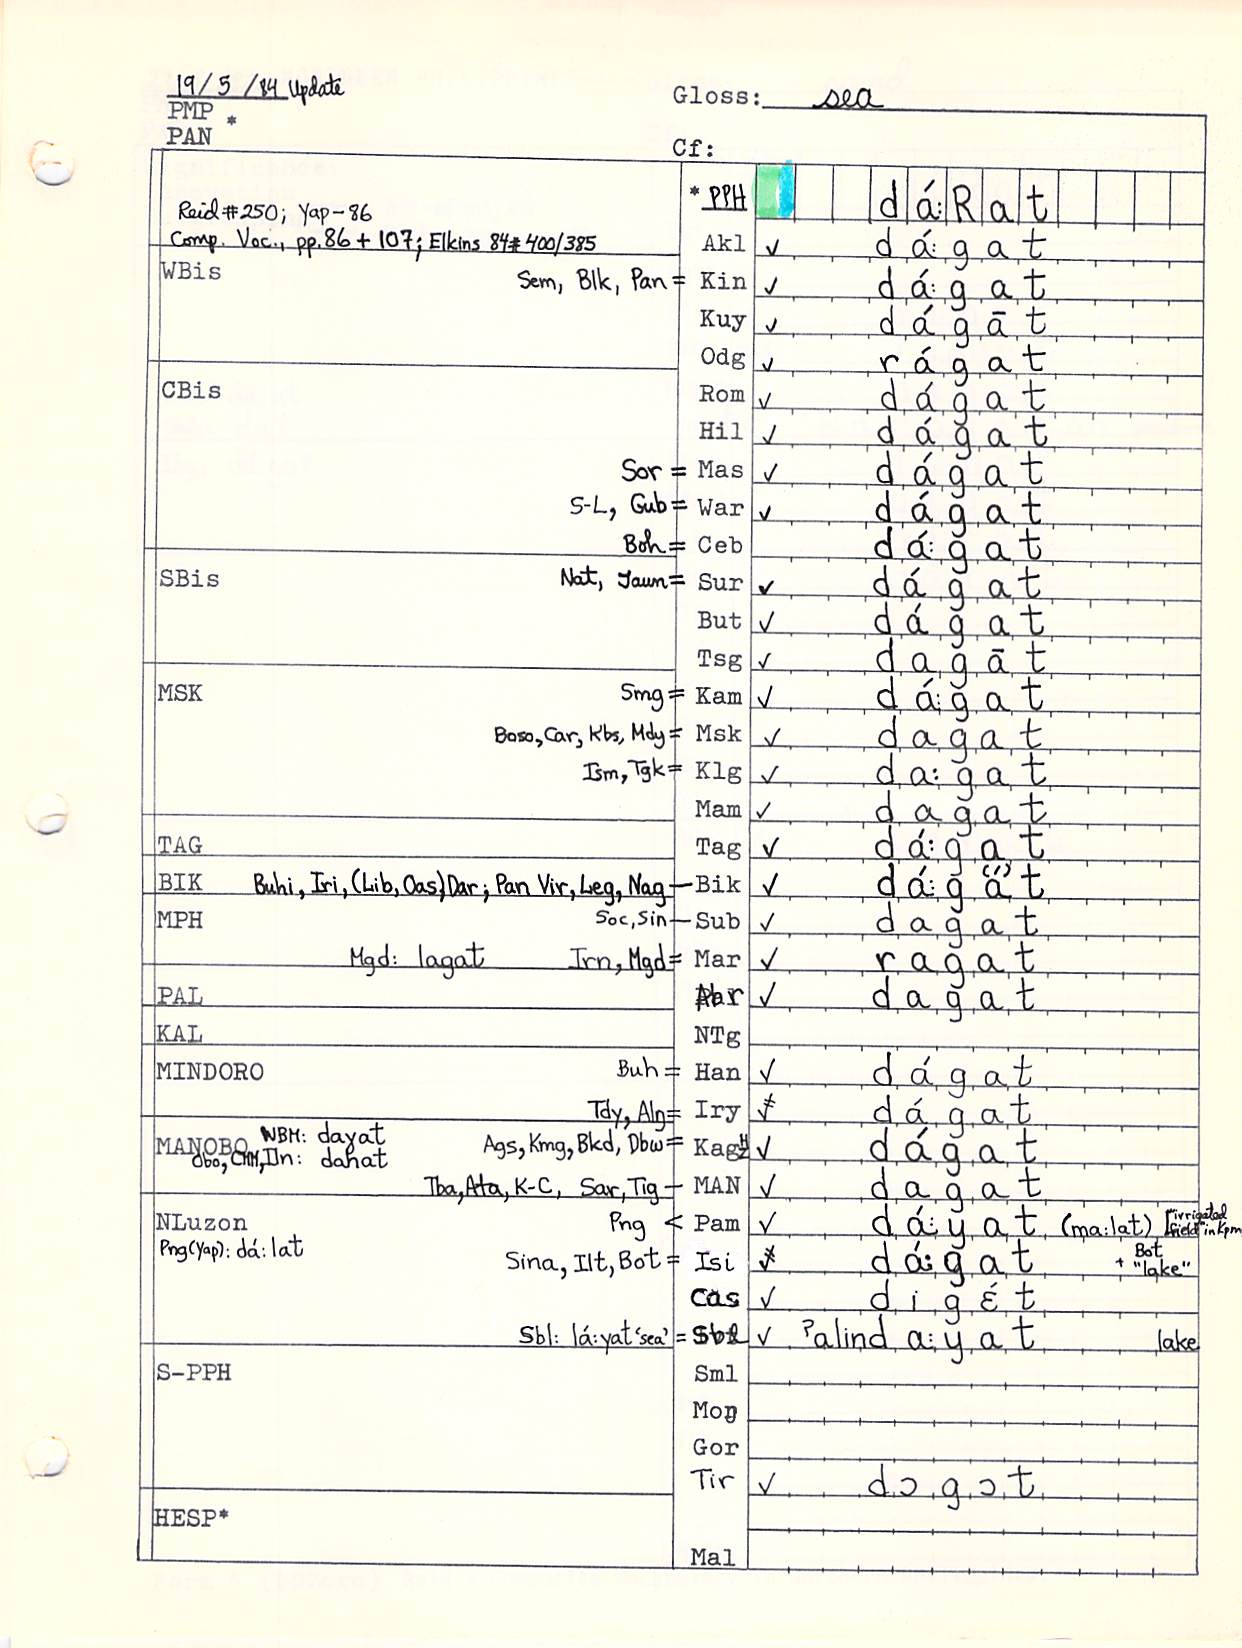 19/5/84 Update
Gloss: sea
PMP *
PAN
Cf:
*PPH dá:Rat
Reid #250; Yap-86
Comp. Voc., pp. 86 + 107; Elkins 84# 400/385
Akl ✓ dá:gat
WBis Sem, Blk, Pan = Kin ✓ dá:gat
Kuy ✓ dágāt
Odg ✓ rágat
CBis Rom ✓ dágat
Hil ✓ dágat
Sor = Mas ✓ dágat
S-L, Gub = War ✓ dágat
Boh = Ceb dá:gat
SBis Nat, Jaun = Sur ✓ dágat
But ✓ dágat
Tsg ✓ dagāt
MSK Smg = Kam ✓ dá:gat
Boso, Car, Kbs, Mdy = Msk ✓ dagat
Ism, Tgk = Klg ✓ da:gat
Mam ✓ dagat
TAG Tag ✓ dá:gat
BIK Buhi, Iri, (Lib, Oas) Dar; Pan Vir, Leg, Nag — Bik ✓ dá:ga(́)t
MPH Soc, Sin — Sub ✓ dagat
Mgd: lagat Irn, Mgd = Mar ✓ ragat
PAL Abr ✓ dagat
KAL NTg
MINDORO Buh = Han ✓ dágat
Tdy, Aln = Iry dágat
MANOBO WBM: dayat Ags, Kmg, Bkd, Dbw = Kag ✓ dágat
Obo, CMM, Iln: dahat
Tba, Ata, K-C, Sar, Tig — MAN ✓ dagat
NLuzon Png < Pam ✓ dá:yat (ma:lat) ["irrigated field" in Kpm
Png (Yap): dá:lat
Sina, Ilt, Bot = Isi dá:gat + Bot "lake"
Cas ✓ digét
Sbl: lá:yat 'sea' = Sbl ✓ ʔalinda:yat lake
S-PPH Sml
Moŋ
Gor
Tir ✓ dɔgɔt
HESP*
Mal